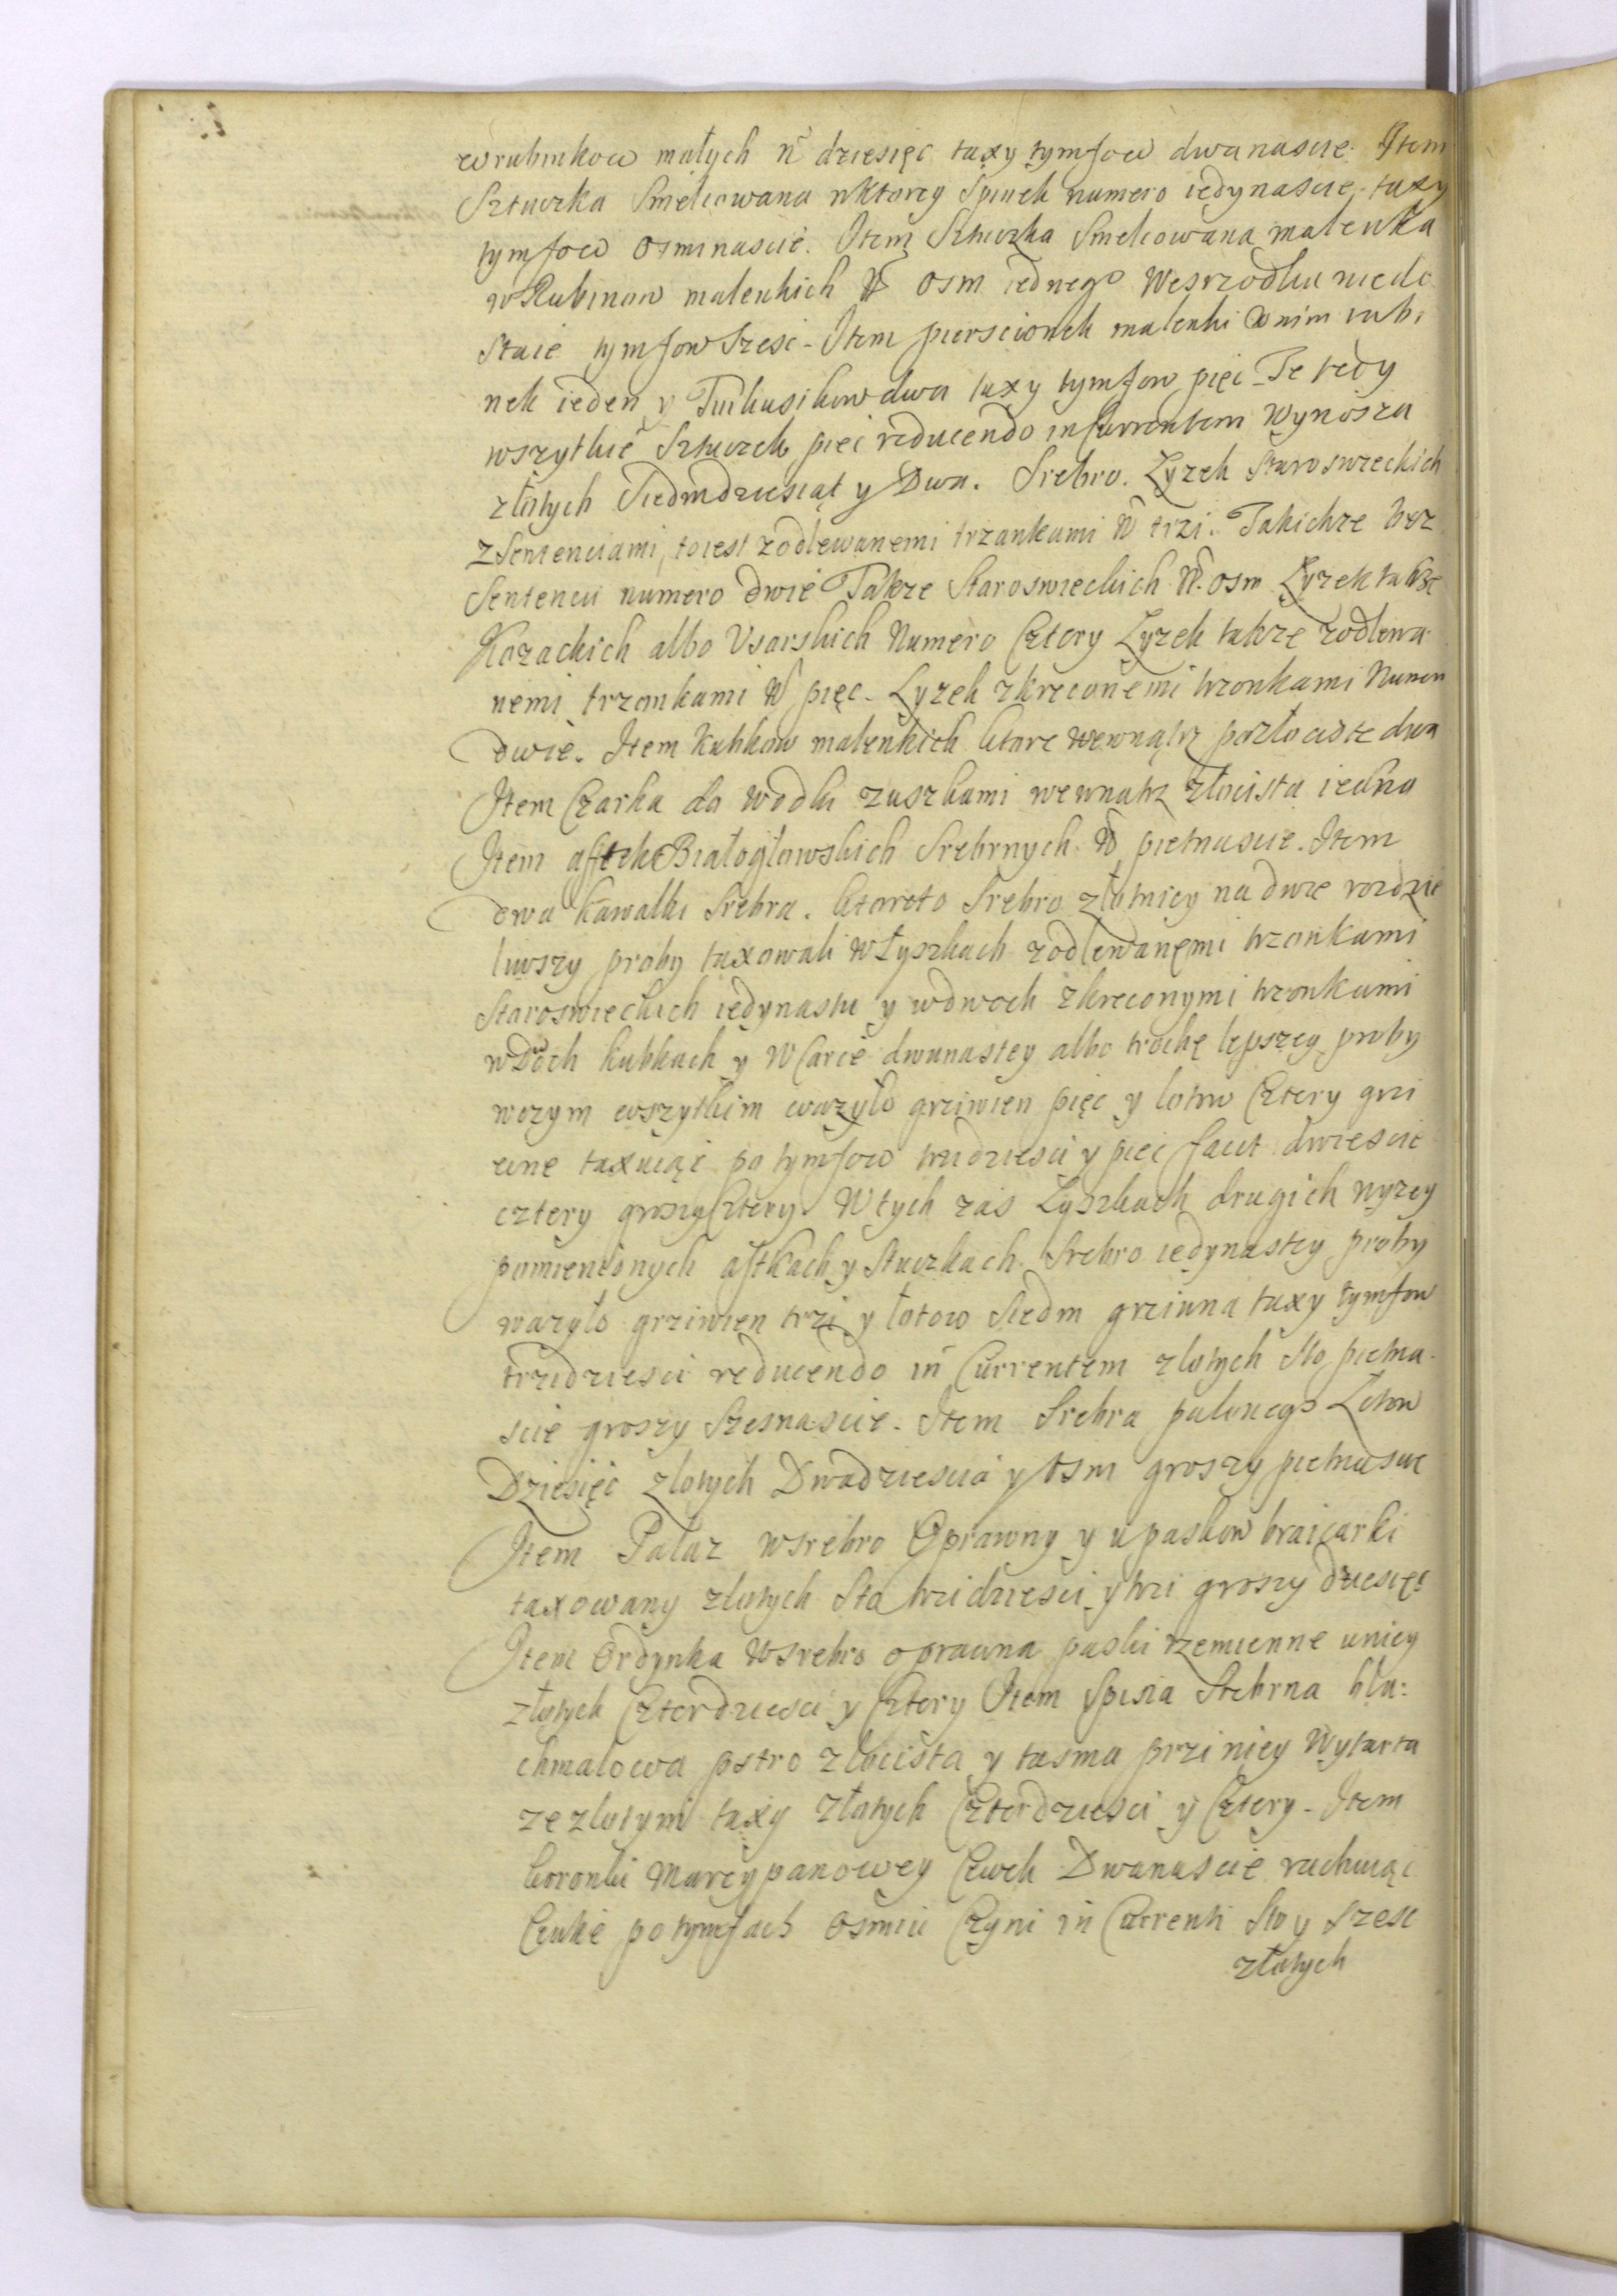 w rubinkow małych N dziesięc taxy tymfow dwanascie. Item
Sztuczka Smelcowana wktorey Spinek numero iedynascie taxy
tymfow osminascie. Item Sztuczka Smelcowana malenka
w Rubinow malenkich N osm iednego Wesrzodku niedo
Staie tymfow Szesc. Item pierscionek malenki w nim rubi
nek ieden y Turkusikow dwa taxy tymfow pięc. Te tedy
wszytkie Sztuczek pięc reducendo in Currentem Wynosza
złotych Siedmdziesiąt y Dwa. Srebro. Lyzek Staroswieckich
z Sentenciami, toiest zodlewanemi trzankami N trzi. Takichze bez
Sentencii numero dwie Takze Staroswieckich N. osm Lyzek takze
Kozackich albo Vsarskich Numero Cztery Lyzek takze zodlewa
nemi trzonkami N pięc. Lyzek zkreconemi trzonkami Numero
dwie. Item Kubkow malenkich ktore wewnątrz pozłociste dwa
Item Czarka do wodki zuszkami wewnatrz złocista iedna
Item aftek Białogłowskich Srebrnych N pietnascie. Item
dwa kawalki Srebra. ktoreto Srebro złotnicy na dwie rozdzie
liwszy proby taxowali w łyszkach zodlewanemi trzonkami
Staroswieckich iedynastu y wdwoch zkreconymi trzonkami
w Dwoch kubkach y w Carce dwunastey albo trochę lepszey proby
wczym wszytkim wazyło grziwien pięc y lotow Cztery grzi
wne taxuiąc po tymfow trzidziesci y pięc facit dwiescie
cztery groszy Cztery. W tych zas Lyszkach drugich wyzey
pomienionych aftkach y Stuczkach. Srebro iedynastey proby
wazyło grziwien trzi y łotow Siedm grziwna taxy tymfow
trzidziesci reducendo in Currentem złotych Sto pietna
scie groszy Szesnascie. Item Srebra palonego Lotow
Dziesięc złotych Dwadziescia y Osm groszy pietnascie
Item Pałaz wsrebro Oprawny y u paskow braicarki
taxowany złotych Sto trzidziesci y trzi groszy dziesięc
Item Ordynka wsrebro oprawna paski rzemienne uniey
złotych Czterdziesci y Cztery Item Spisia Srebrna bla:
chmalowa pstro złocista y tasma przi niey Wytarta
ze złotym taxy złotych Czterdziesci y Cztery. Item
koronki Marcypanowey Cewek Dwanascie rachuiąc
Cewke po tymfach Osmiu Czyni in Currenti Sto y Szesc
złotych